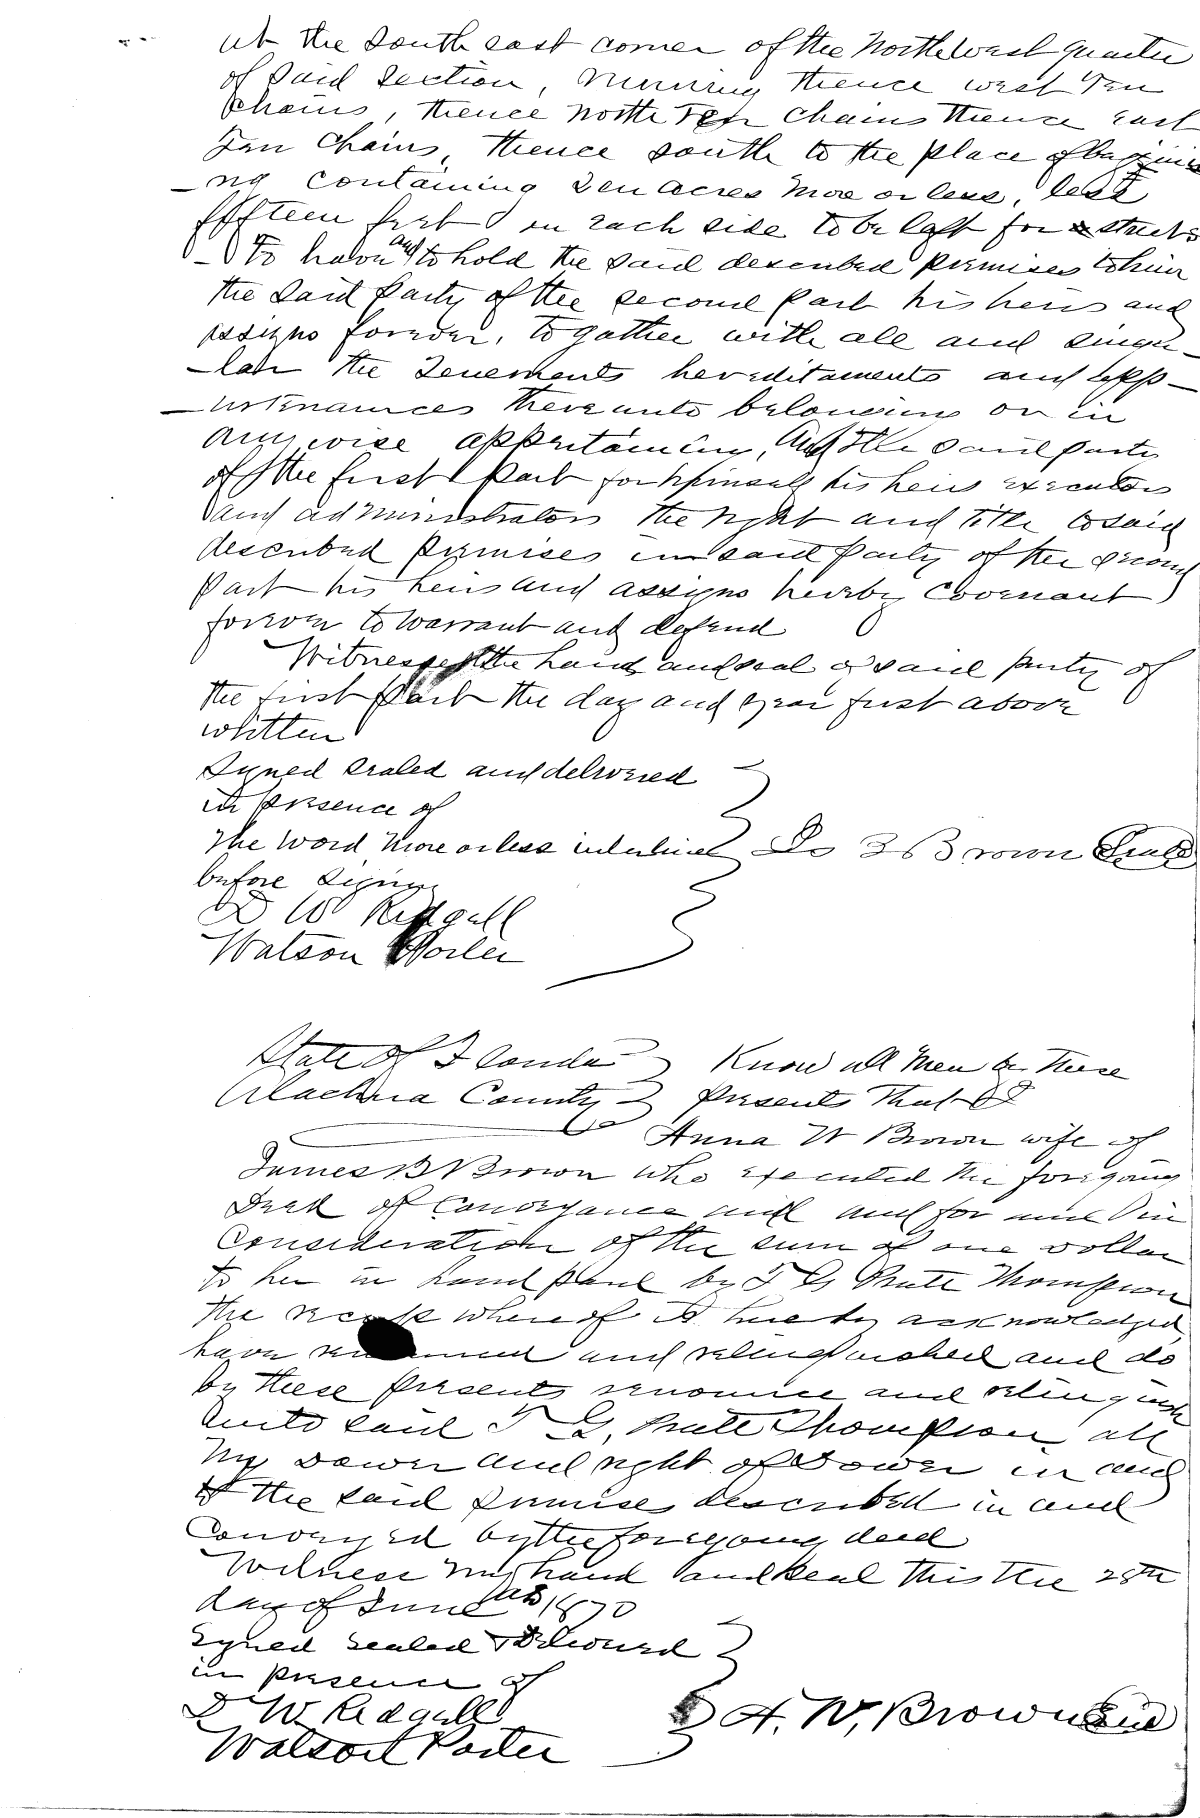 at the South east corner of the North West quarter
of said Section, running thence west Ten
Chains, thence north Ten chains thence east
Ten Chains, thence south to the place of beginni
-ng containing Ten acres more or less, less
fifteen feet on each side to be left for streets
- To have and to hold the said described premises to him
the said Party of the second Part his heirs and
assigns forever, together with all and singu-
-lar the Tenements hereditaments and app-
-urtenances thereunto belonging or in
any wise appertaining, And the said party
of the first Part for himself his heirs executors
and administrators the right and title to said
described premises in said Party of the second
Part his heirs and assigns hereby covenant
forever to warrant and defend
Witnesseth the hand and seal of said Party of
the first Part the day and year first above
written
Signed sealed and delivered
in presence of
The word more or less interlined
before signing
Brown Seal
D W Ridgall
Watson Porter
State of Florida Know all men by These
Alachua County Presents That I
Anna W Brown wife of
James B Brown who executed the foregoing
Deed of conveyance and and for and in
Consideration of the sum of one dollar
to her in hand paid by T G Pratt Thompson
the receipt whereof is hereby acknowledged,
have and relinquished and do
by these Presents renounce and relinquish
unto said T G, Pratt Thompson all
my dower and right of Dower in and
to the said premises described in and
Conveyed by the foregoing deed
Witness my hand and Seal this the 28th
day of June AD 1870
Signed sealed & Delivered
in presence of
D W Ridgall
A. W. Brown Seal
Watson Porter